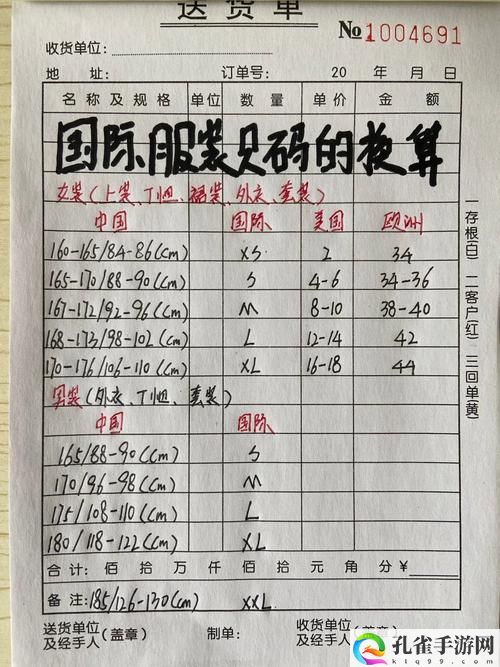 送货单
№1004691
收货单位:
地 址: 订单号: 20 年 月 日
名称及规格 单位 数量 单价 金额
国际服装尺码的换算
女装(上装、T恤、裙装、外衣、套装)
中国 国际 美国 欧洲
160-165/84-86(cm) XS 2 34
165-170/88-90(cm) S 4-6 34-36
167-172/92-96(cm) M 8-10 38-40
168-173/98-102(cm) L 12-14 42
170-176/106-110(cm) XL 16-18 44
男装(外衣、T恤、套装)
中国 国际
165/88-90(cm) S
170/96-98(cm) M
175/108-110(cm) L
180/118-122(cm) XL
合计: 佰 拾 万 仟 佰 拾 元 角 分 ¥
备注: 185/126-130(cm) XXL
送货单位及经手人(盖章) 制单: 收货单位及经手人(盖章)
一存根(白) 二客户(红) 三回单(黄)
孔雀手游网
ktq99.com